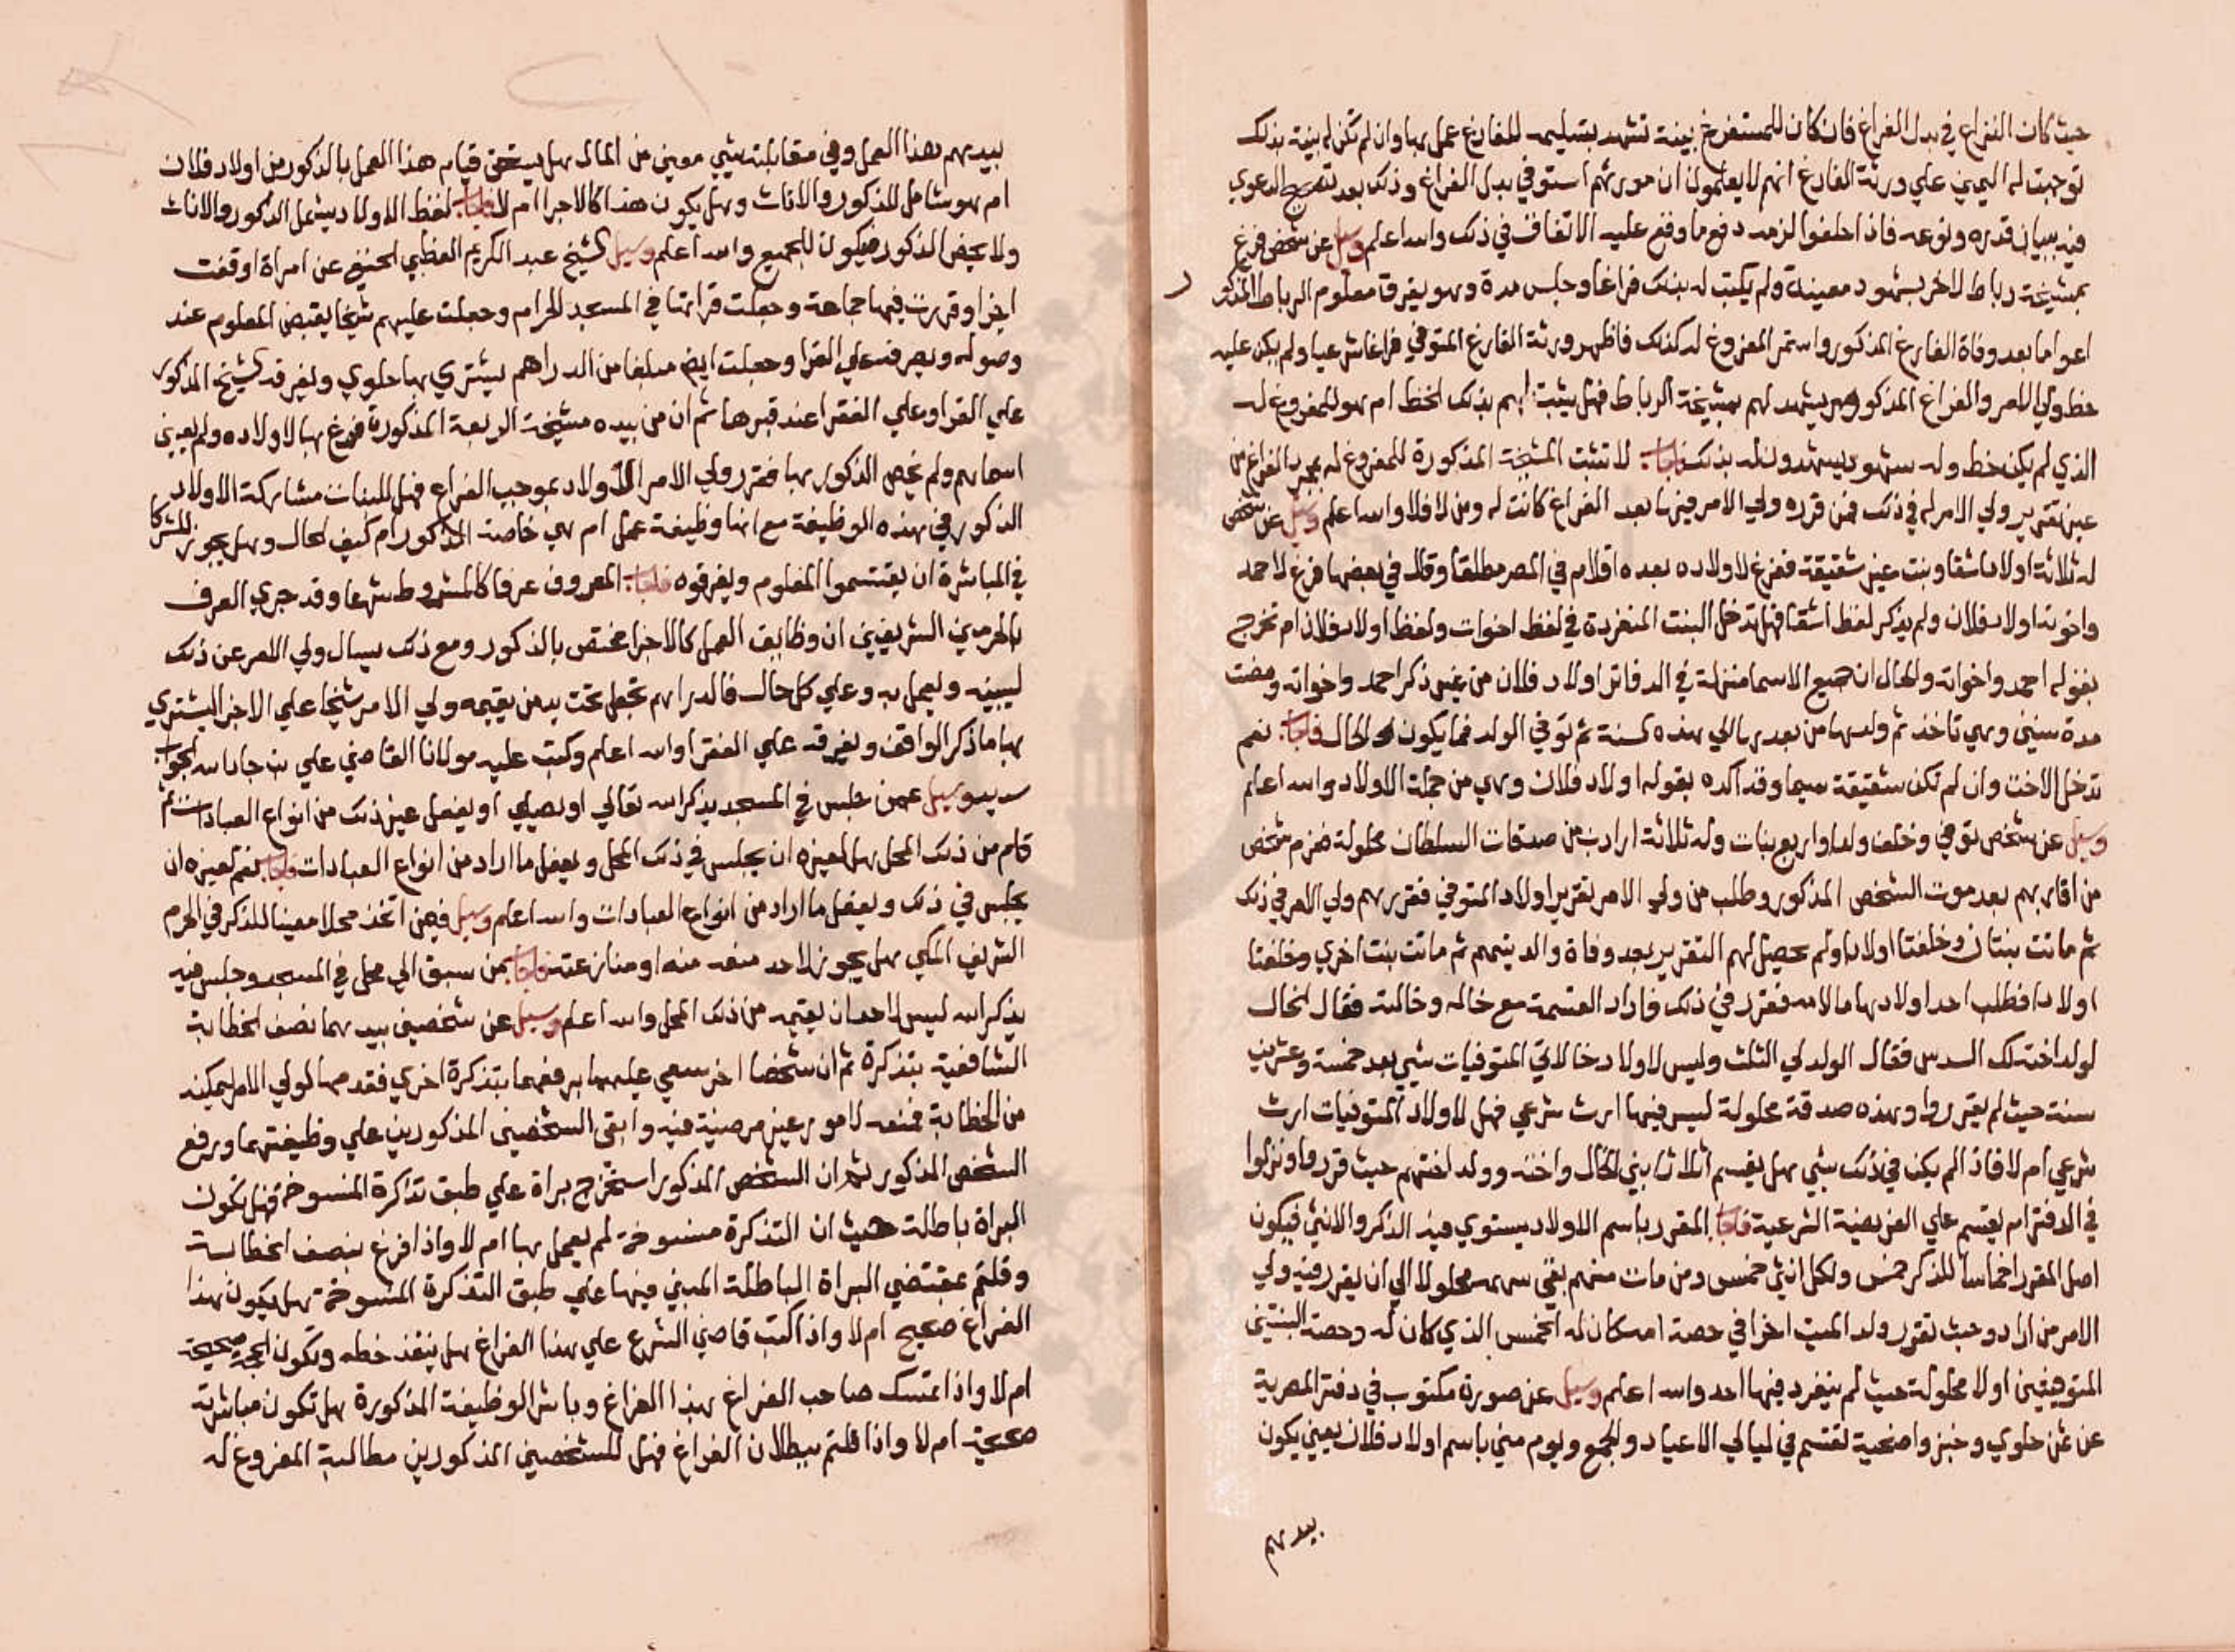 حيث كان النزاع في بدل الفراغ فان كان للمستفرغ بينة تشهد بتسليمه للفارغ عمل بها وان لم تكن له بينة بذلك
توجهت له اليمين علي ورثة الفارغ انهم لا يعلمون ان مورثهم استوفي بدل الفراغ وذلك بعد تصحيح الدعوي
فيه ببيان قدره ونوعه فاذا حلفوا لزمه دفع ما وقع عليه الاتفاق في ذلك والله اعلم وسيل عن شخص فرغ
بمشيخة رباط لاخر بشهود معينة ولم يكتب له بذلك فراغا وجلس مدة وهو يفرق معلوم الرباط المذكور
اعواما بعد وفاة الفارغ المذكور واستمر المفروغ له كذلك فاظهر ورثة الفارغ المتوفي فراغا شرعيا ولم يكن عليه
خط ولي الامر والفراغ المذكور يشهد لهم بمشيخة الرباط فهل يثبت لهم بذلك الخط ام هو للمفروغ له
الذي لم يكن خط وله شهود يشهدون له بذلك فاجاب لا تثبت المشيخة المذكورة للمفروغ له بمجرد الفراغ من
غير تقرير ولي الامر له في ذلك فمن قرره ولي الامر فيها بعد الفراغ كانت له ومن لا فلا والله اعلم وسيل عن شخص
له ثلاثة اولاد اشقا وبنت غير شقيقة ففرغ لاولاده بعده اقلام في المصر مطلقا وقال في بعضها فرغ لاحمد
واخوته اولاد فلان ولم يذكر لفظ اشقا فهل تدخل البنت المنفردة في لفظ اخوات ولفظ اولاد فلان ام تخرج
بقوله احمد واخواته والحال ان جميع الاسما منزلة في الدفاتر اولاد فلان من غير ذكر احمد واخواته ومضت
مدة سنين وهي تاخذ ثم ولدها من بعدها الي هذه السنة ثم توفي الولد فما يكون الحال فاجاب نعم
تدخل الاخت وان لم تكن شقيقة سيما وقد اكده بقوله اولاد فلان وهي من جملة الاولاد والله اعلم
وسيل عن شخص توفي وخلف ولدا واربع بنات وله ثلاثة ارادب من صدقات السلطان محلولة فخرم شخص
من اقاربهم بعد موت الشخص المذكور وطلب من ولي الامر تقرير اولاد المتوفي فقررهم ولي الامر في ذلك
ثم ماتت بنتان وخلفتا اولادا ولم يحصل لهم التقرير بعد وفاة والديتهم ثم ماتت بنت اخري وخلفت
اولادا فطلب احد اولادها ما لامه فقرر في ذلك فاراد القسمة مع خاله وخالته فقال الخال
لولد اخته لك السدس فقال الولد لي الثلث وليس لاولاد خالاتي المتوفيات شي بعد خمسة وعشرين
سنة حيث لم يقرروا وهذه صدقة محلولة ليس فيها ارث شرعي فهل لاولاد المتوفيات ارث
شرعي ام لا فاذا لم يكن في ذلك شي هل يقسم اثلاثا بين الخال واخته وولد اختهم حيث قرروا ونزلوا
في الدفتر ام يقسم علي الفريضة الشرعية فاجاب المقرر باسم الاولاد يستوي فيه الذكر والانثي فيكون
اصل المقرر اخماسا للذكر خمس ولكل انثي خمس ومن مات منهم بقي سهمه محلولا الي ان يقرر فيه ولي
الامر من اراد وحيث تقرر ولد الميت اخرا في حصة امه كان له الخمس الذي كان له وحصة البنتين
المتوفيتين اولا محلولة حيث لم يتفرد فيها احد والله اعلم وسيل عن صورة مكتوب في دفتر المصرية
عن ثمن حلوي وخبز واضحية تقسم في ليالي الاعياد والجمع ويوم مني باسم اولاد فلان يعني يكون
بيدهم
بيدهم هذا العمل وفي مقابلته شي معين من المال هل يستحق قيام هذا العمل بالذكور من اولاد فلان
ام هو شامل للذكور والاناث وهل يكون هذا كالاجرا ام لا فاجاب لفظ الاولاد يشمل الذكور والاناث
ولا يخص الذكور فيكون للجميع والله اعلم وسيل الشيخ عبد الكريم القطبي الحنفي عن امراة اوقفت
اجزا وقررت فيها جماعة وجعلت قراتها في المسجد الحرام وجعلت عليهم شيخا يقبض المعلوم عند
وصوله ويصرفه علي القرا وجعلت ايضا مبلغا من الدراهم يشتري بها حلوي ويفرقه الشيخ المذكور
علي القرا وعلي الفقرا عند قبرها ثم ان من بيده مشيخة الربعة المذكورة فرغ بها لاولاده ولم يعين
اسماهم ولم يخص الذكور بها فقرر ولي الامر الاولاد بموجب الفراغ فهل للبنات مشاركة الاولاد
الذكور في هذه الوظيفة مع انها وظيفة عمل ام هي خاصة المذكور ام كيف الحال وهل يجوز للشركا
في المباشرة ان يقتسموا المعلوم ويفرقوه فاجاب المعروف عرفا كالمشروط شرعا وقد جري العرف
بالحرمين الشريفين ان وظايف العمل كالاجزا مختص بالذكور ومع ذلك يسال ولي الامر عن ذلك
ليبينه ويعمل به وعلي كل حال فالدراهم تجعل تحت يد من يقيمه ولي الامر شيخا علي الاجزا ليشتري
بها ما ذكر الواقف ويفرقه علي الفقرا والله اعلم وكتب عليه مولانا القاضي علي بن جاد الله الجواب
سديد وسيل عمن جلس في المسجد يذكر الله تعالي او يصلي او يفعل غير ذلك من انواع العبادات ثم
قام من ذلك المحل هل لغيره ان يجلس في ذلك المحل ويفعل ما اراد من انواع العبادات فاجاب نعم لغيره ان
يجلس في ذلك ويفعل ما اراد من انواع العبادات والله اعلم وسيل فيمن اتخذ محلا معينا للذكر في الحرم
الشريف المكي هل يجوز لاحد منعه منه او منازعته فاجاب من سبق الي محل في المسجد وجلس فيه
يذكر الله ليس لاحد ان يقيمه من ذلك المحل والله اعلم وسيل عن شخصين بيدهما نصف الخطابة
الشافعية بتذكرة ثم ان شخصا اخر سعي عليهما برفعهما بتذكرة اخري فقدمها لولي الامر ليمكنه
من الخطابة فمنعه لامور غير مرضية فيه وابقي الشخصين المذكورين علي وظيفتهما ورفع
الشخص المذكور ثم ان الشخص المذكور استخرج براة علي طبق تذكرة المنسوخة فهل تكون
البراة باطلة حيث ان التذكرة منسوخة لم يعمل بها ام لا واذا فرغ بنصف الخطابة
وقلتم بمقتضي البراة الباطلة المبني فيها علي طبق التذكرة المنسوخة هل يكون هذا
الفراغ صحيح ام لا واذا كتب قاضي الشرع علي هذا الفراغ هل ينفذ خطه وتكون الحجة صحيحة
ام لا واذا تمسك صاحب الفراغ بهذا الفراغ وباشر الوظيفة المذكورة هل تكون مباشرته
صحيحة ام لا واذا قلتم ببطلان الفراغ فهل للشخصين المذكورين مطالبة المفروغ له